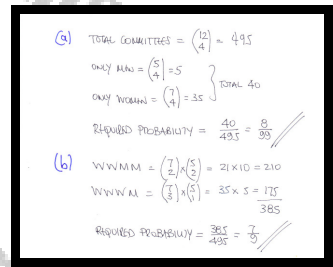 (a) TOTAL COMMITTEES = (12 4) = 495
ONLY MEN = (5 4) = 5
ONLY WOMEN = (7 4) = 35 } TOTAL 40
REQUIRED PROBABILITY = 40/495 = 8/99
(b) WWMM = (7 2) × (5 2) = 21 × 10 = 210
WWWM = (7 3) × (5 1) = 35 × 5 = 175
385
REQUIRED PROBABILITY = 385/495 = 7/9